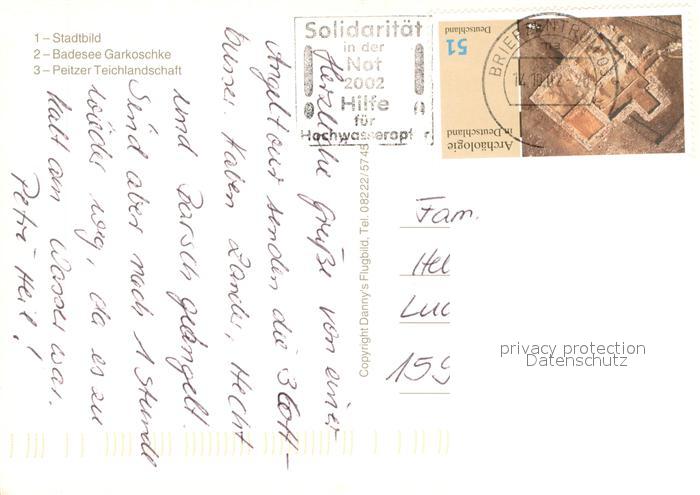 1 – Stadtbild
2 – Badesee Garkoschke
3 – Peitzer Teichlandschaft
Solidarität
in der
Not
2002
Hilfe
für
Hochwasseropfer
BRIEFZENTRUM 03
51
Deutschland
Archäologie
in Deutschland
Herzliche Grüße von einer
Angeltour senden die 3 Cott-
busser. Haben Zander, Hecht
und Barsch geangelt.
Sind aber nach 1 Stunde
wieder weg, da es zu
kalt am Wasser war.
Petri Heil!
Copyright Danny's Flugbild, Tel. 08222/5745
Fam.
Hel
Luc
159
privacy protection
Datenschutz